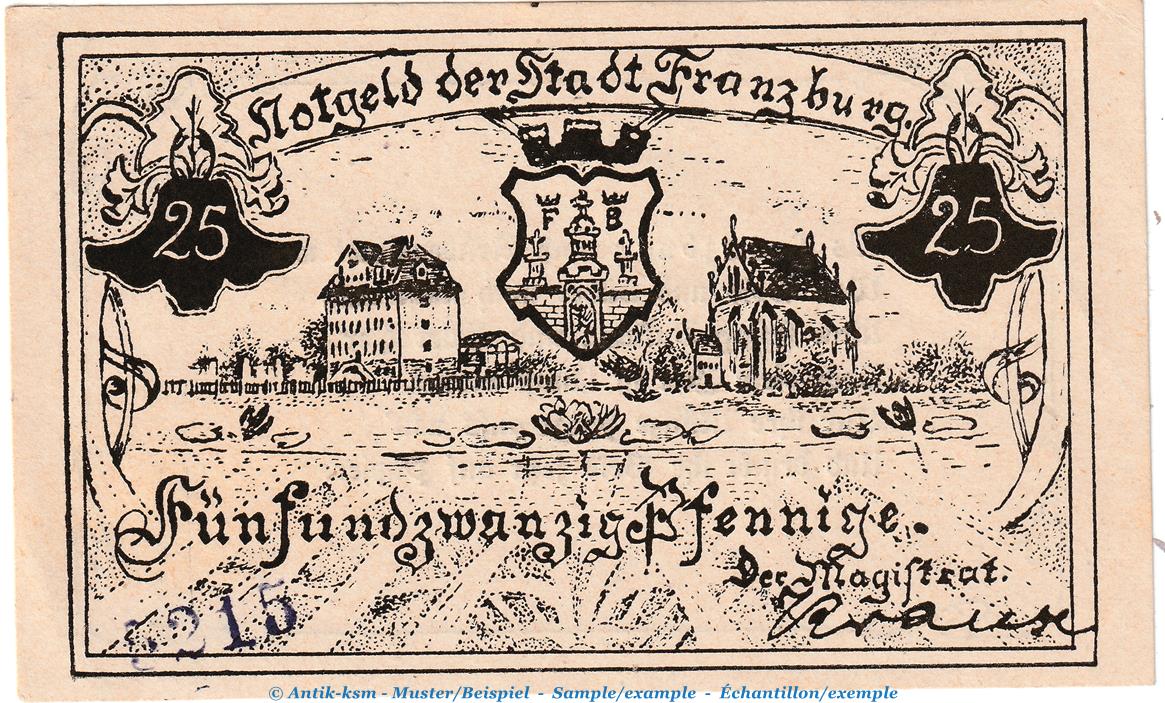 Notgeld der Stadt Franzburg.
25
25
F B
Fünfundzwanzig Pfennige.
Der Magistrat.
215
© Antik-ksm - Muster/Beispiel - Sample/example - Échantillon/exemple